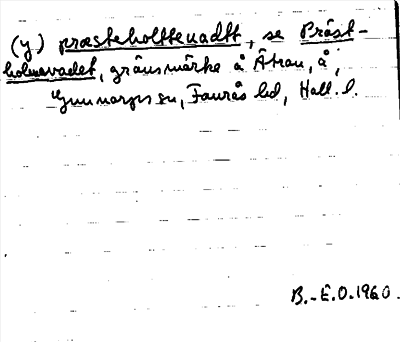 (y) præsteholttevadtt, se Präst-
holmavadet, gränsmärke å Ätran, å,
Gunnarps sn, Faurås hd, Hall. l.
B.-E.O. 1960.